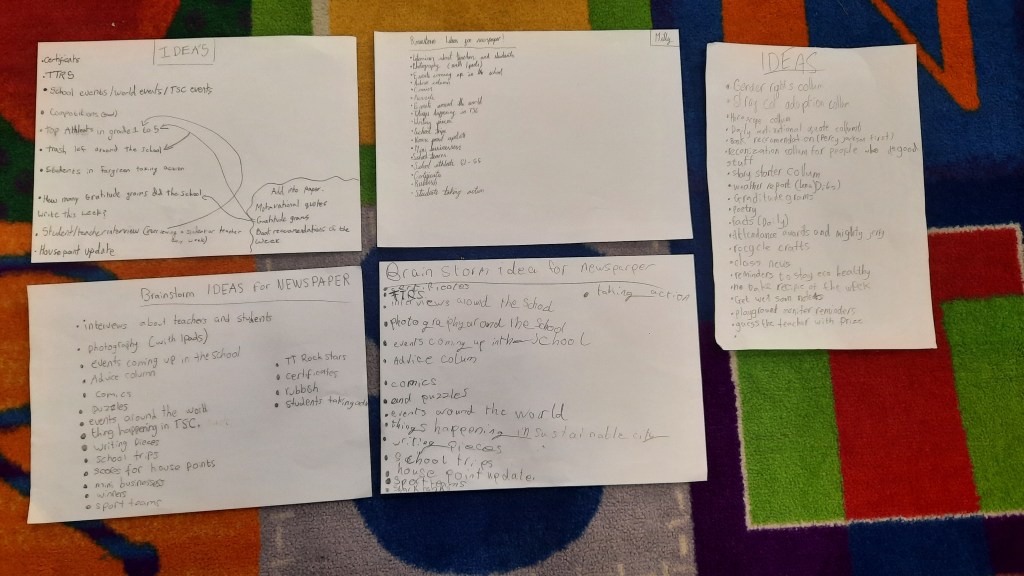 IDEAS
• certificate
• TTRS
• School events/world events/TSC events
• Compositions
• Top Athlets in grade 1 to 5
• Trash lot around the school
• Students in taking action
• How many Gratitude grams did the school
write this week?
• Student/teacher interview
• House point update
Add the paper.
Motivational quotes
Gratitude grams
Book recomendations of the
week
Brainstorm Ideas for newspaper!
Milly
• Interviews about teachers and students
• Photography (with Ipads)
• Events coming up in the school
• Advice column
• Comics
• Events around the world
• Things happening in TSC
• Writing pieces
• School trips
• House point update
• Mini businesses
• Certificate
• Rubbish
• Students taking action
IDEAS
• Gender rights collum
• Stray cat adoption collum
• collum
• Book recomendation
• Reconization collum for people who do good
stuff
• Story starter colum
• weather report
• Gratitude grams
• Poetry
• Facts (Daily)
• Attendance awards and
• recycle crafts
• class news
• reminders to stay eco healthy
• no bake recipe of the week
• Get well soon notes
• playground monitor reminders
• guess the teacher with prize
Brainstorm IDEAS FOR NEWSPAPER
• interviews about teachers and students
• photography (with Ipads)
• events coming up in the school
• Advice column
• comics
• puzzles
• events around the world
• thing happening in TSC.
• writing pieces
• school trips
• scores for house points
• mini businesses
• winners
• sport teams
• TT Rock stars
• certificates
• rubbish
• students taking
Brain storm idea for newsparper
• certificates
• TTRS
• interviews around the School
• taking action
• photography around the School
• events coming up in the School
• Advice colum
• comics
• and puzzles
• events around the world
• things happening in sustainable city
• writing pieces
• school trips
• house point update.
• sport teams